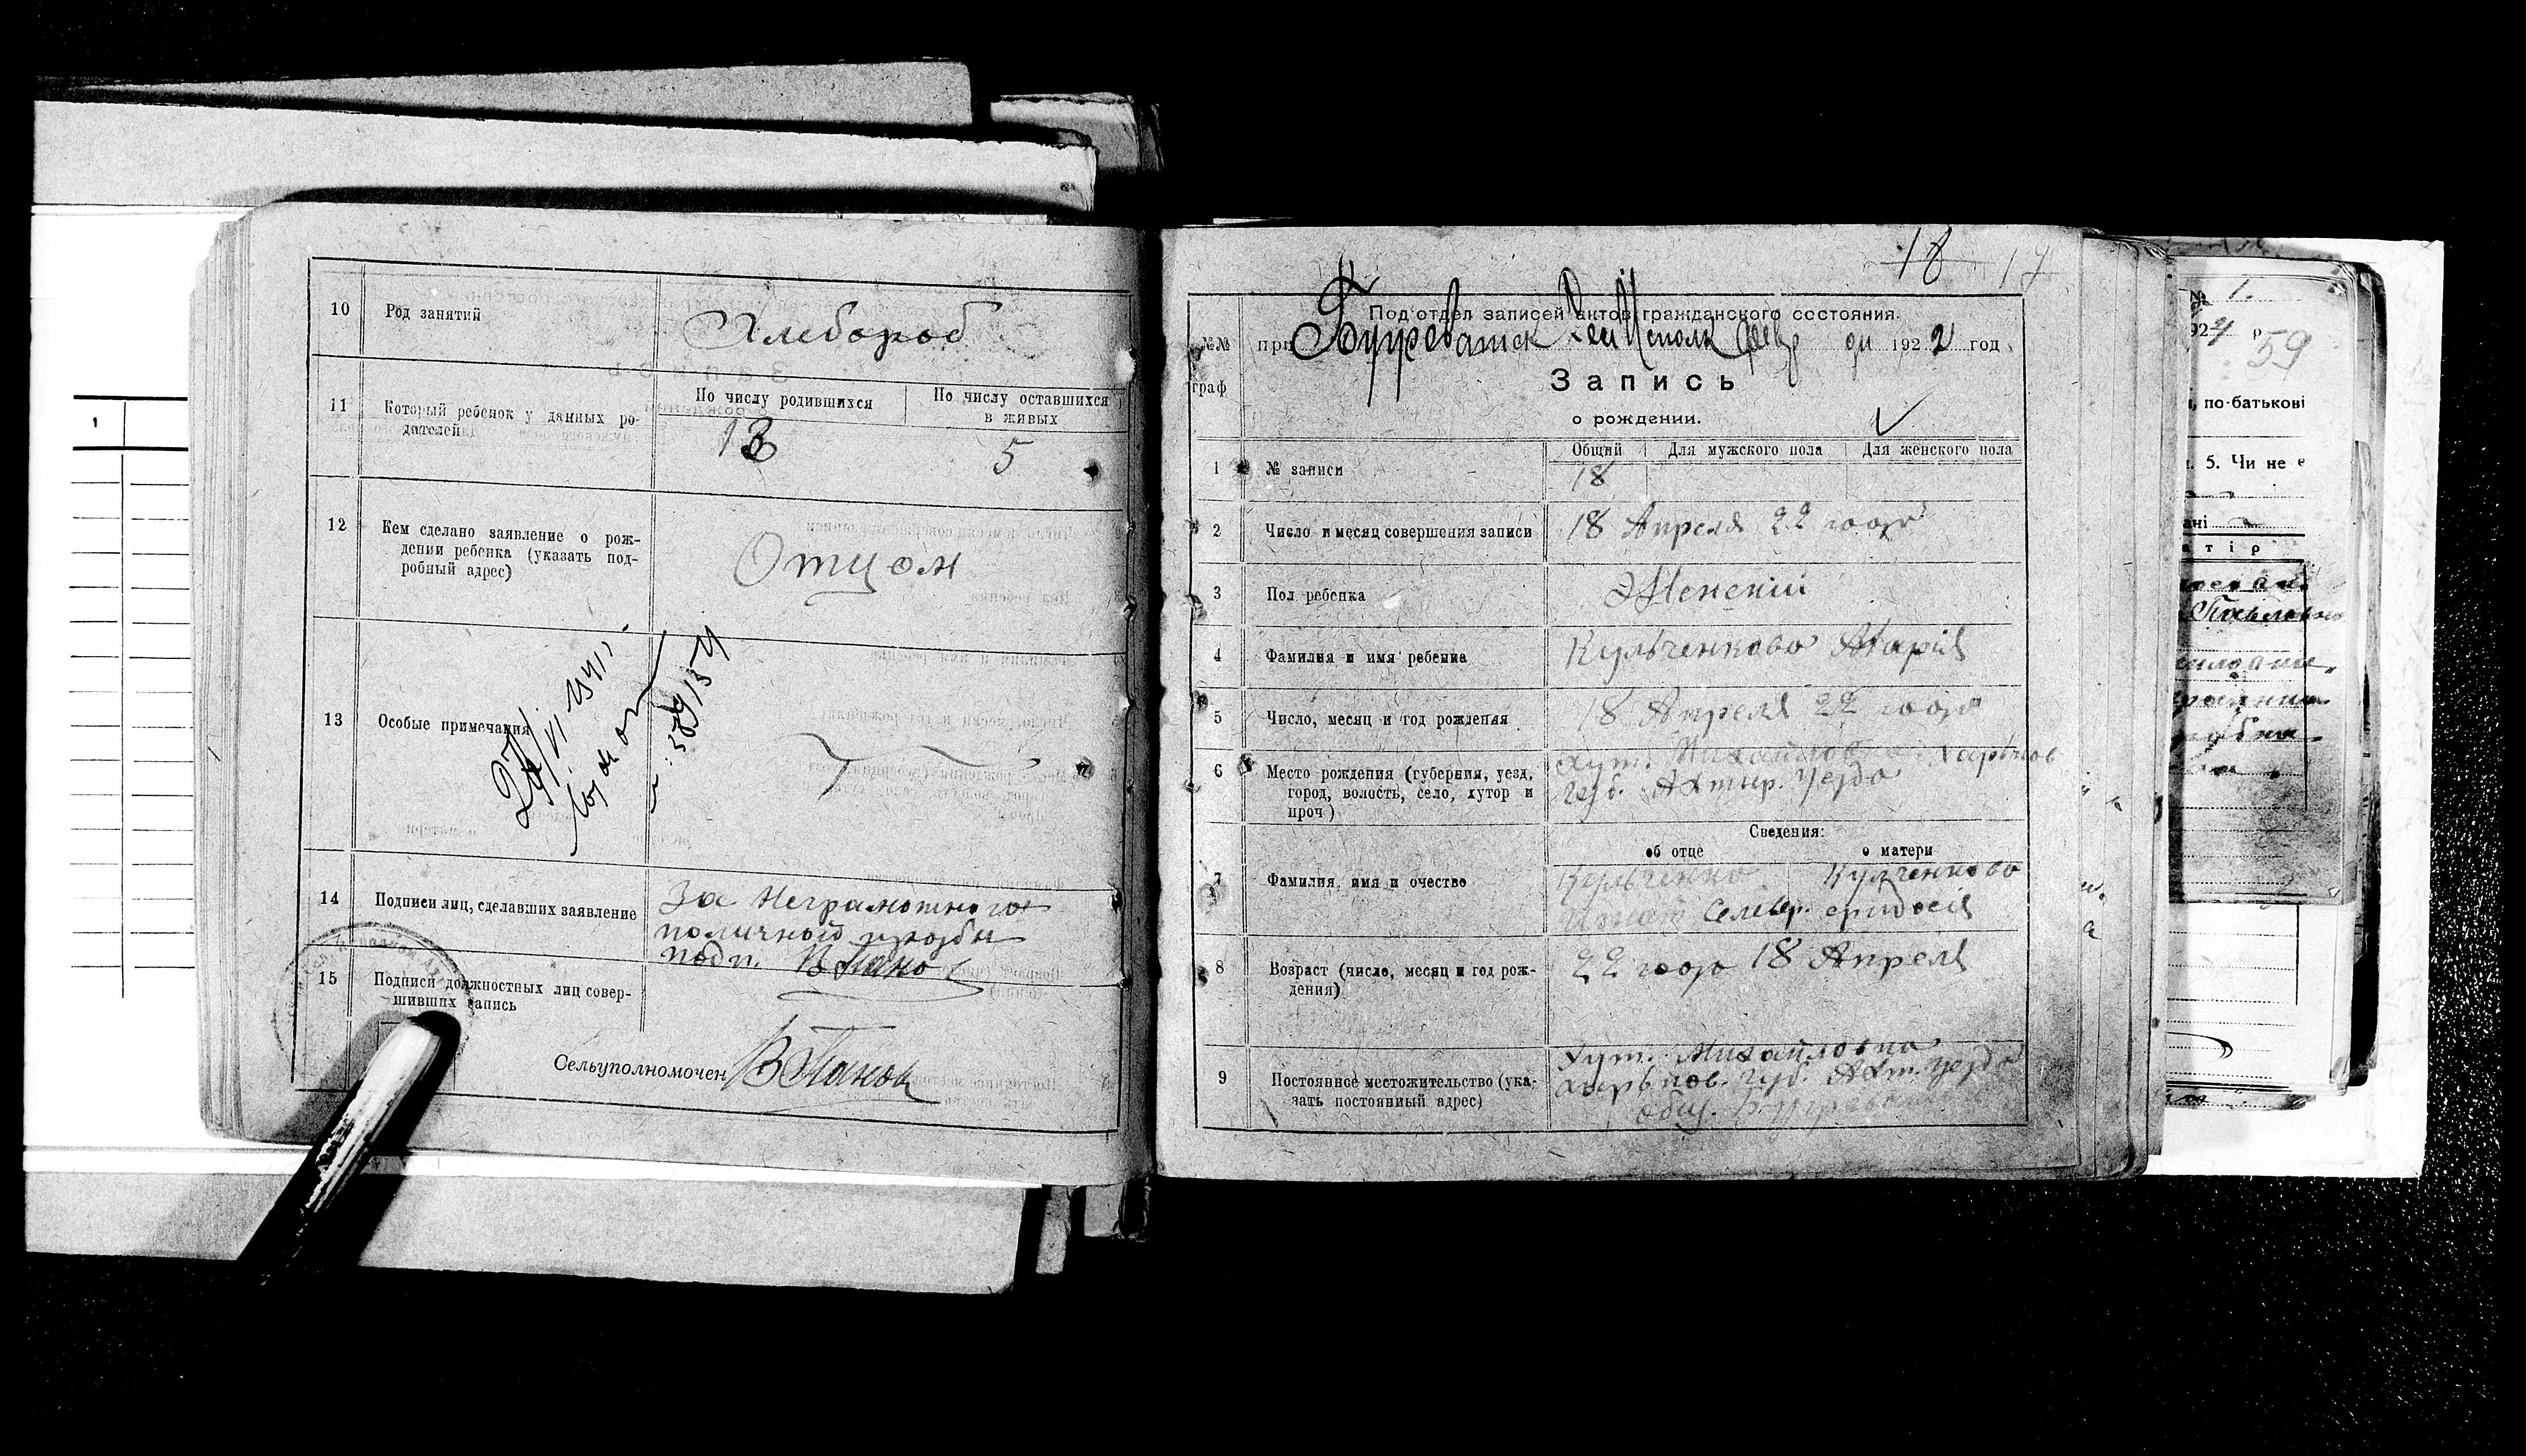 10
Род занятий
Хлебороб
11
Который ребенок у данных ро-
дателей
По числу родившихся
По числу оставшихся
в живых
13
5
12
Кем сделано заявление о рож-
дении ребенка (указать под-
робный адрес)
Отцом
13
Особые примечания
14
Подписи лиц, сделавших заявление
За Неграмотного
поличной прозбы
подп. В Панов
15
Подписи должностных лиц совер-
шивших запись
Сельуполномочен
В Панов
18
17
Под'отдел записей актов гражданского состояния.
№№
граф
при
192 2 год
Запись
о рождении.
Общий
Для мужского пола
Для женского пола
1
№ записи
18
2
Число и месяц совершения записи
18 Апреля 22 года
3
Пол ребенка
Женский
4
Фамилия и имя ребенка
Кульченково Марія
5
Число, месяц и год рождения
18 Апреля 22 года
6
Место рождения (губерния, уезд,
город, волость, село, хутор и
проч)
Хут. Михайловка Харьков
Губ. Ахтыр. Уезда
Сведения:
об отце
о матери
7
Фамилия, имя и очество
Кульченко
Кульченково
8
Возраст (число, месяц и год рож-
дения)
22 года 18 Апреля
9
Постоянное местожительство (ука-
зать постоянный адрес)
Хут. Михайловка
Харьков. Губ. Ахт. уезда
1
192 4 р
59
, по-батькові
5. Чи не є